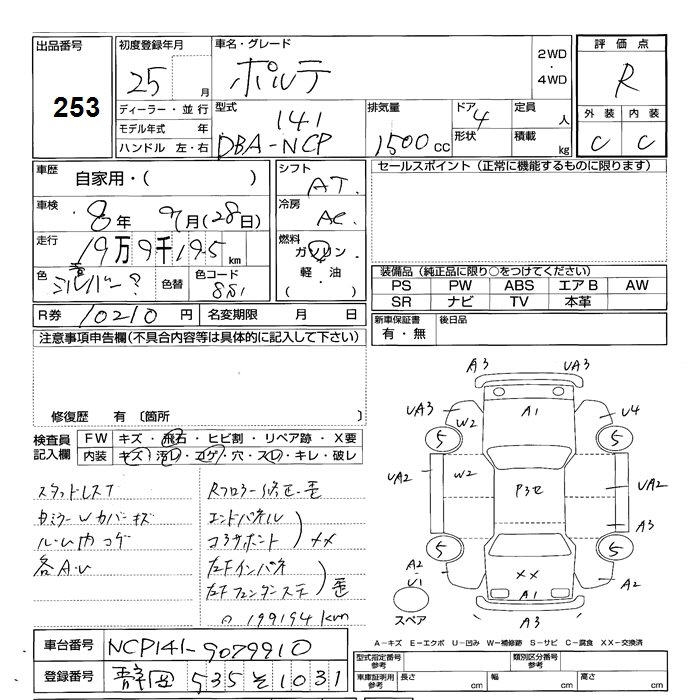 出品番号
253
初度登録年月
25 月
ディーラー・並行
モデル年式 年
ハンドル 左・右
車名・グレード
ポルテ
2WD
・
4WD
型式
DBA-NCP141
排気量
1500 cc
ドア 4
形状
定員 人
積載 kg
評価点
R
外装 内装
C C
車歴
自家用・( )
車検
8年 9月(28日)
走行
19万9千195 km
色
色替
色コード
シフト
AT
冷房
AC
燃料
ガソリン
軽・油
( )
セールスポイント (正常に機能するものに限ります)
装備品 (純正品に限り○をつけてください)
PS PW ABS エアB AW
SR ナビ TV 本革
R券 10210 円 名変期限 月 日
新車保証書
有・無
後日品
注意事項申告欄(不具合内容等は具体的に記入して下さい)
修復歴 有 〔箇所 〕
検査員
記入欄
FW キズ・飛石・ヒビ割・リペア跡・X要
内装 キズ・汚レ・コゲ・穴・スレ・キレ・破レ
スタッドレスT
ルーム内コゲ
各A・U
Rフロアー修正・歪
エンドパネル
コアサポート
××
左Fインパネ
歪
199194km
A3 UA3
UA3 W2 A1 U4
5 5
UA2 W2 P3セ UA2
A3
5 5
A2 U1 ×× A1 A2
A3
スペア
A-キズ E-エクボ U-凹み W-補修跡 S-サビ C-腐食 XX-交換済
車台番号 NCP141-9079910
登録番号 静岡 535 そ 1031
型式指定番号
参考
類別区分番号
参考
車庫証明用
参考
長さ cm
幅 cm
高さ cm